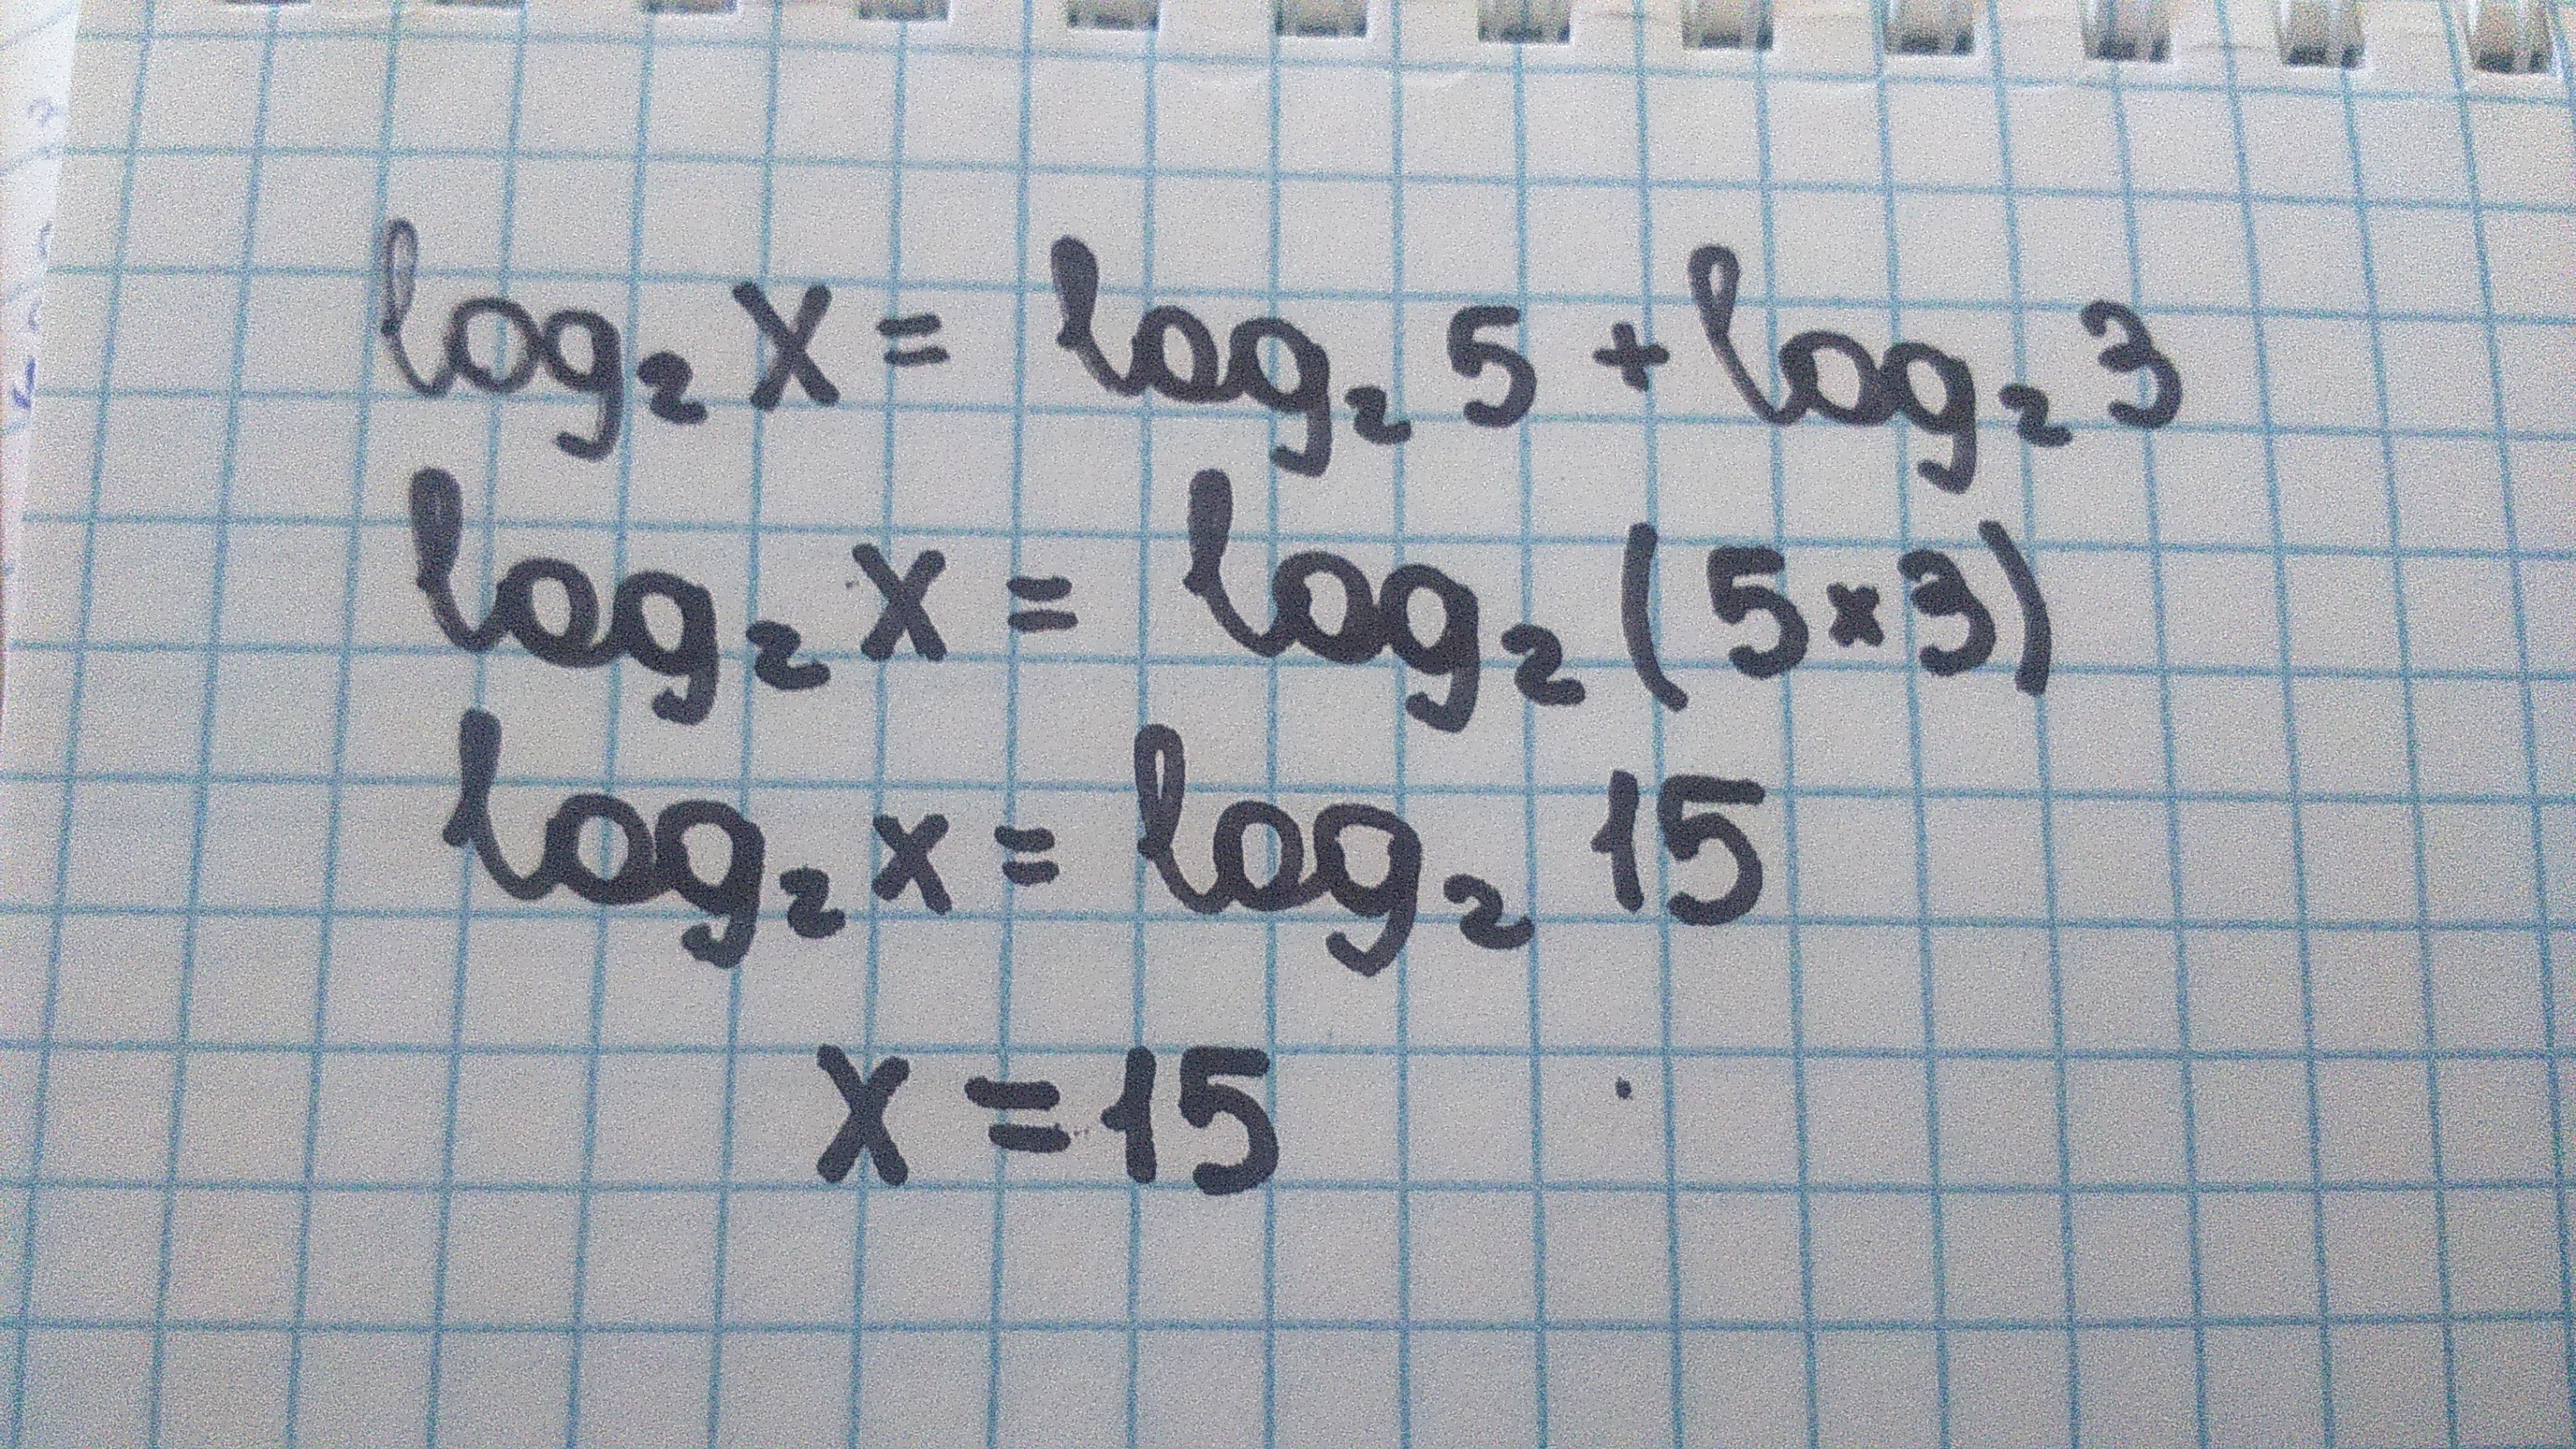 log₂ x = log₂ 5 + log₂ 3
log₂ x = log₂ (5×3)
log₂ x = log₂ 15
x = 15